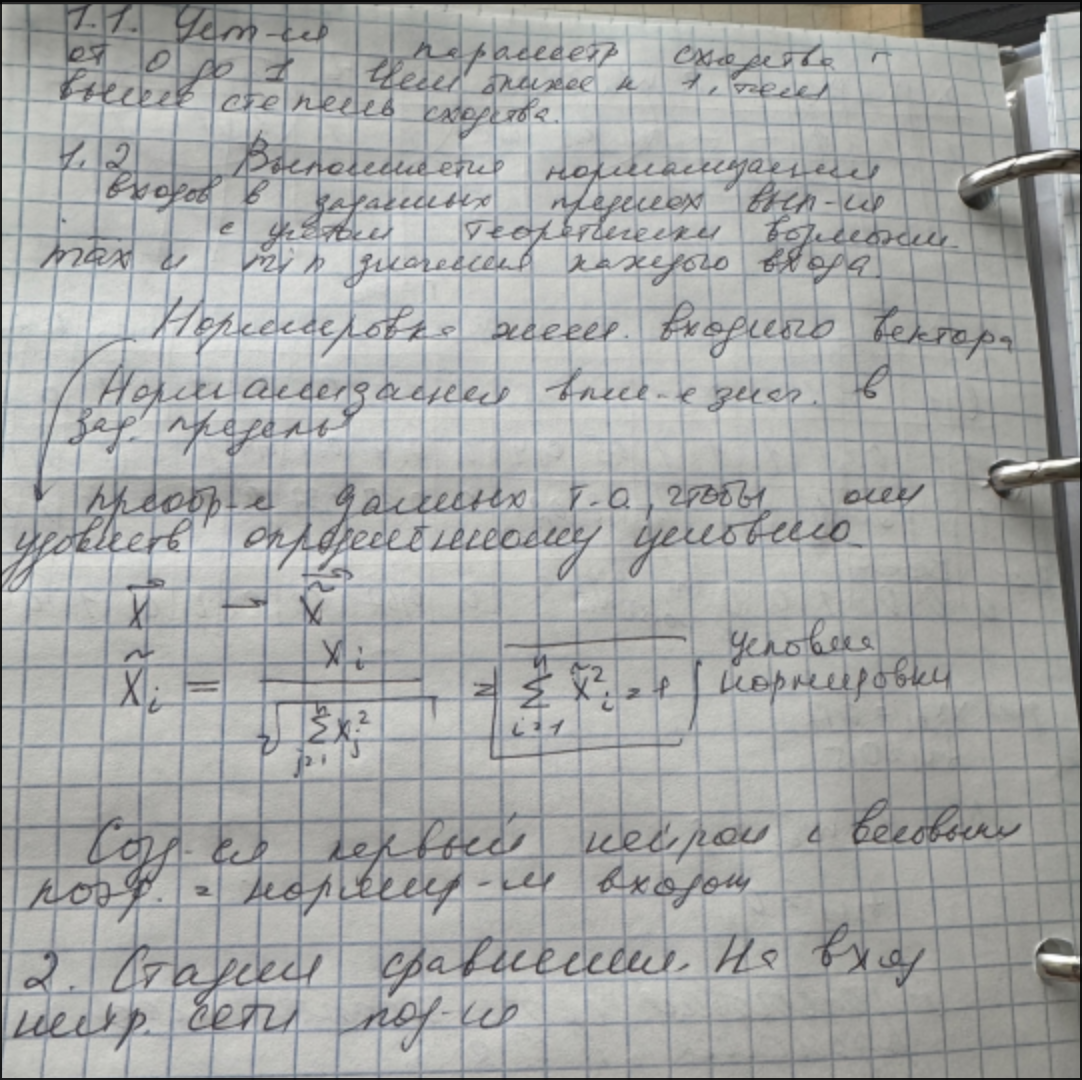 1.1. Уст-ся параметр сходства r
от 0 до 1 Чем ближе к 1, тем
выше степень сходства.
1.2 Выполняется нормализация
входов в заданных пределах вып-ся
с учётом теоретически возможн.
max и min значения каждого входа.
Нормировка входного вектора
Нормализация в
зад. пределы
преобр-е данных т.о., чтобы они
удовлетв определённому условию
X → X̃
X̃i = xi / √(Σ xj²) = Σ x̃i² = 1 условие
j=1 n i=1 n нормировки
Созд-ся первый нейрон с весовыми
коэф. = нормир-м входам
2. Стадия сравнения. На вход
нейр. сети под-ся